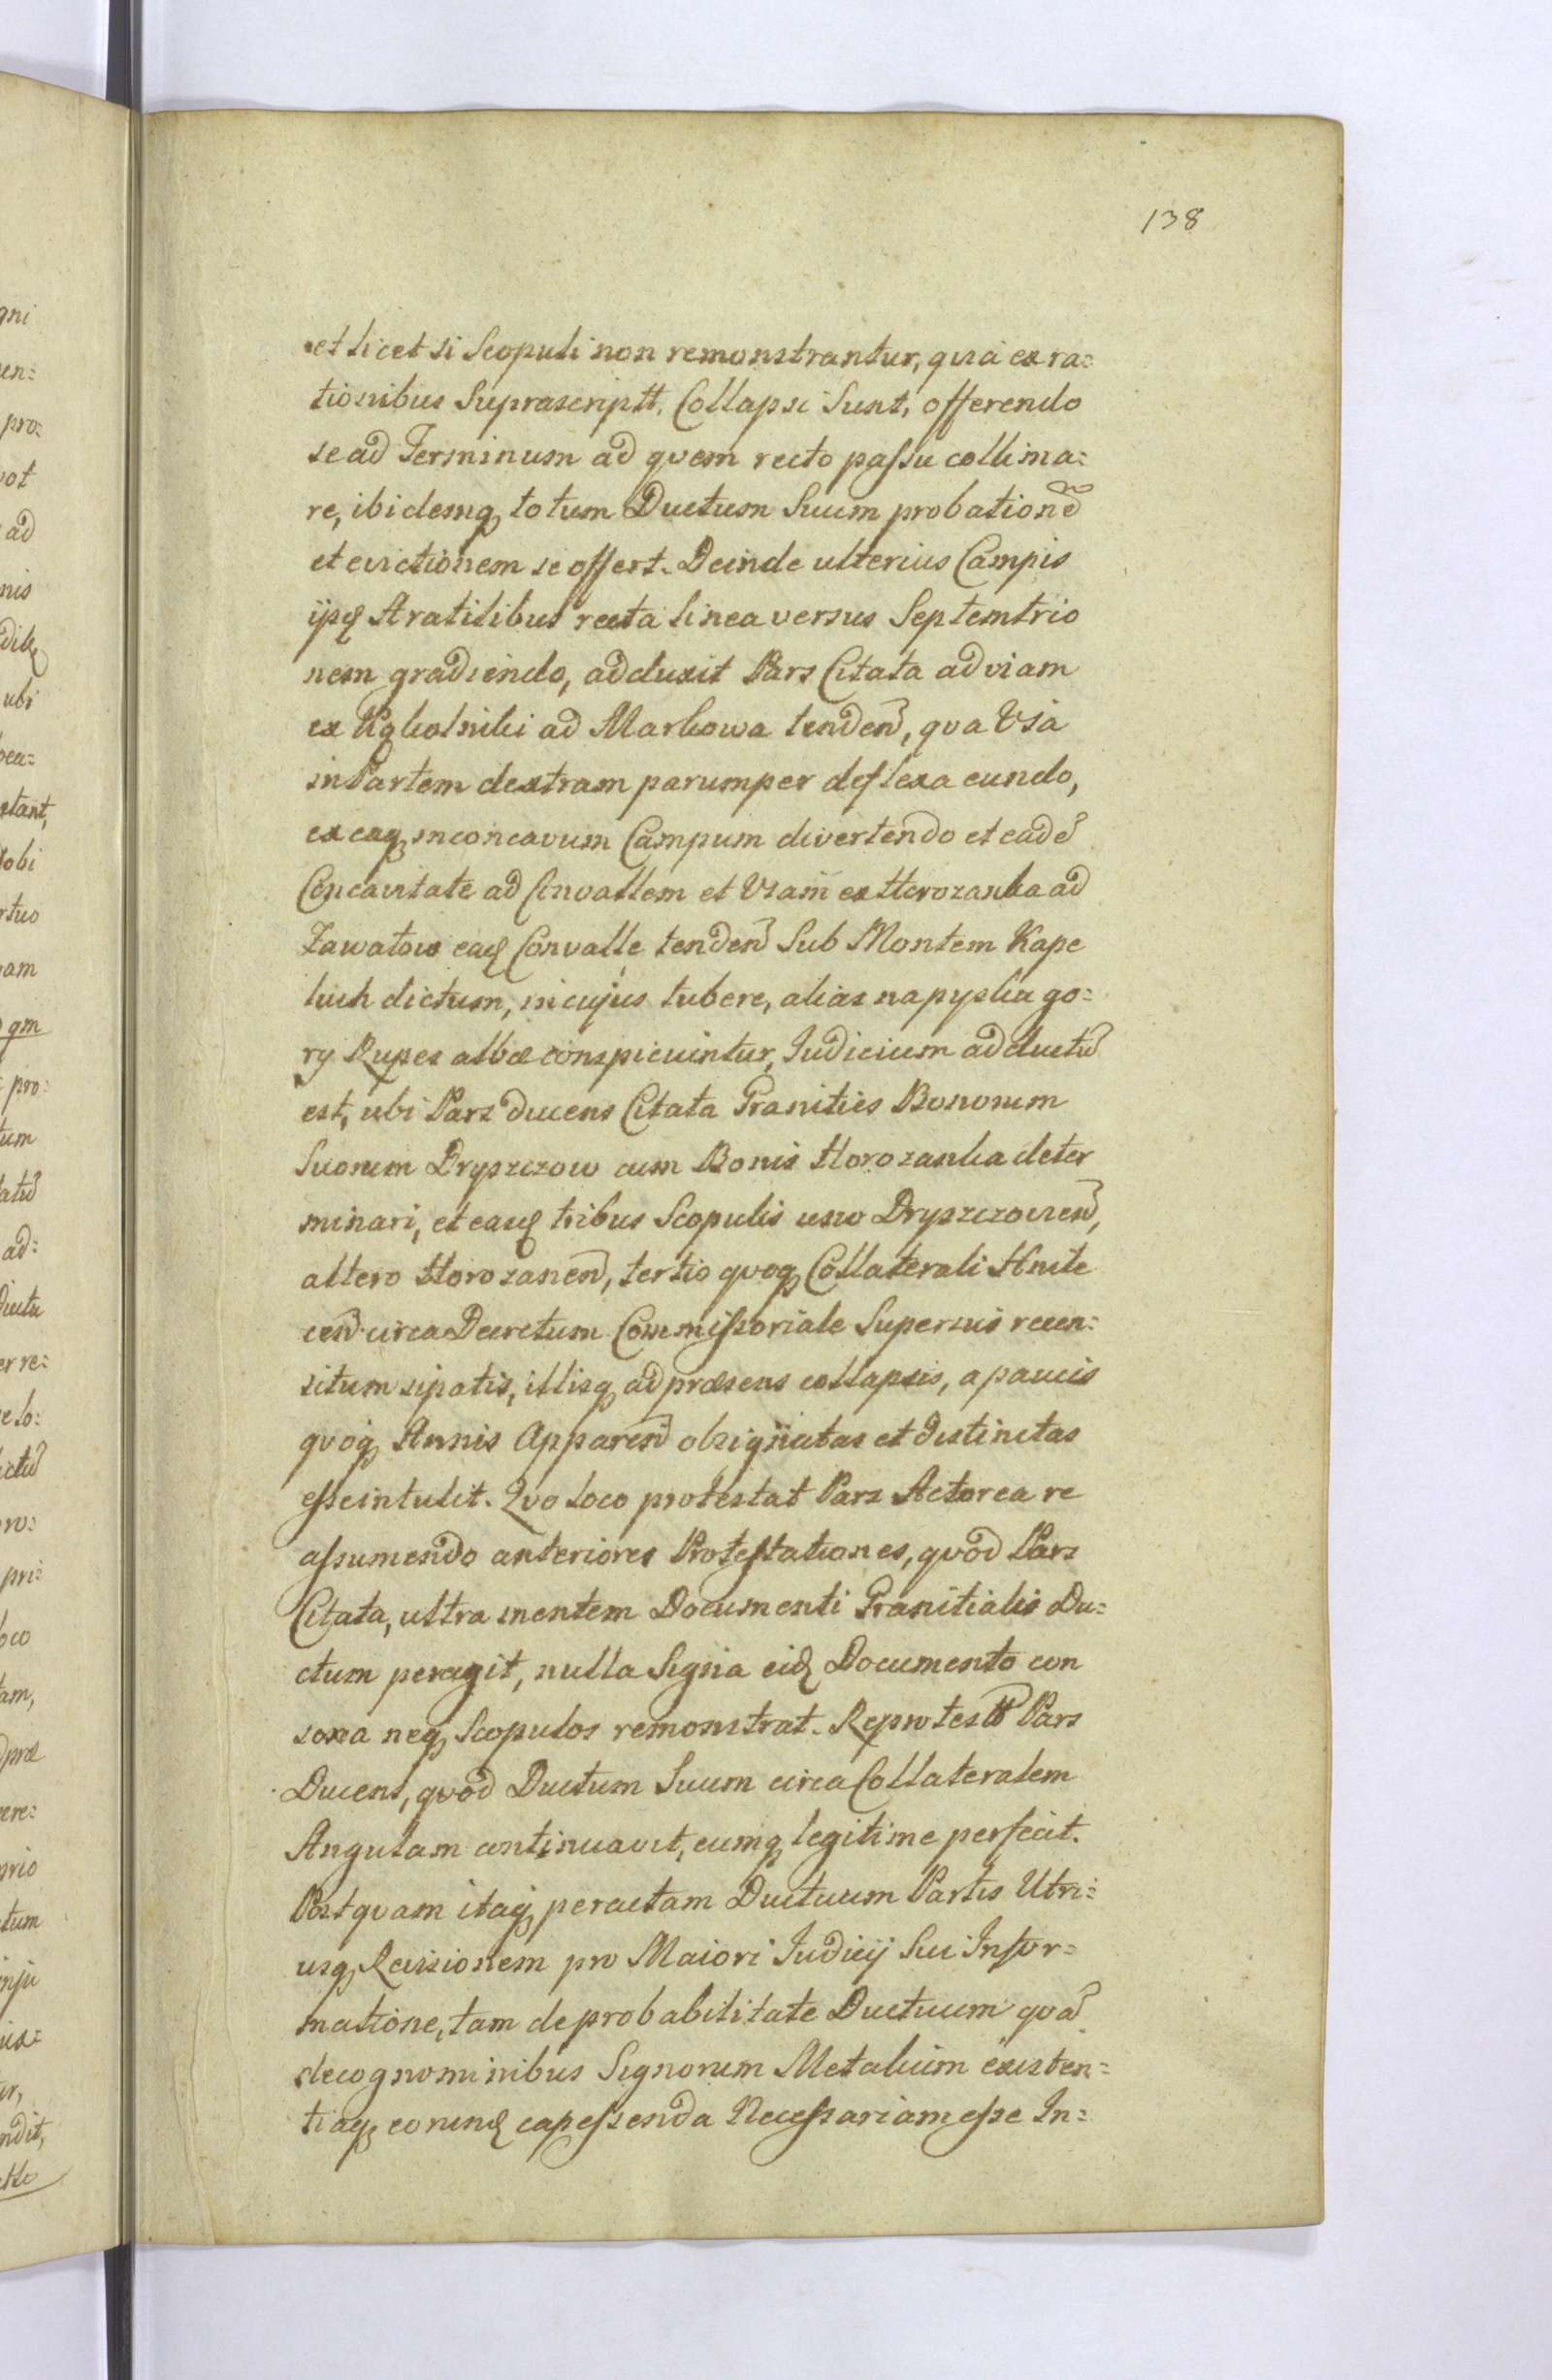 138
et licet si Scopuli non remonstrantur, quia ex ra=
tionibus Suprascriptt. Collapsi Sunt, offerendo
se ad Terminum ad quem recto passu collima=
re, ibidemq totum Ductum Suum probatione
et evictionem se offert. Deinde ulterius Campis
ijsq Aratilibus recta linea versus Septemtrio
nem gradiendo, adduxit Pars Citata ad viam
ex ad Markowa tenden, qva Via
in Partem dextram parumper deflexa eundo,
ex eaq in concavum Campum divertendo et eade
Concavitate ad Convallem et Viam ex Horozanka ad
Zawatow eaq Convalle tenden Sub Montem Kape
luch dictum, in cujus tubere, alias na pysku go=
ry Rupes albæ conspiciuntur, Judicium adductu
est, ubi Pars ducens Citata Granities Bonorum
Suorum Dryszczow cum Bonis Horozanka deter
minari, et easq tribus Scopulis uno Dryszczovien,
altero Horozanen, tertio qvoq Collaterali Hnile
cen circa Decretum Commissoriale Superius recen=
situm sipatis, illisq ad præsens collapsis, a paucis
qvoq Annis Apparen obsignatas et distinctas
esse intulit. Qvo loco protestat Pars Actorea re
assumendo anteriores Protestationes, qvod Pars
Citata, ultra mentem Documenti Granitialis Du=
ctum peragit, nulla Signa eid Documento con
sona neq Scopulos remonstrat. Reprotestt Pars
Ducens, qvod Ductum Suum circa Collateralem
Angulam continuavit, eumq legitime perfecit.
Postqvam itaq peractam Ductuum Partis Utri=
usq Revisionem pro Maiori Judicij Sui Infor=
matione, tam de probabilitate Ductuum qva
de cognominibus Signorum Metalium existen=
tiaq eorund capessenda Necessariam esse In=